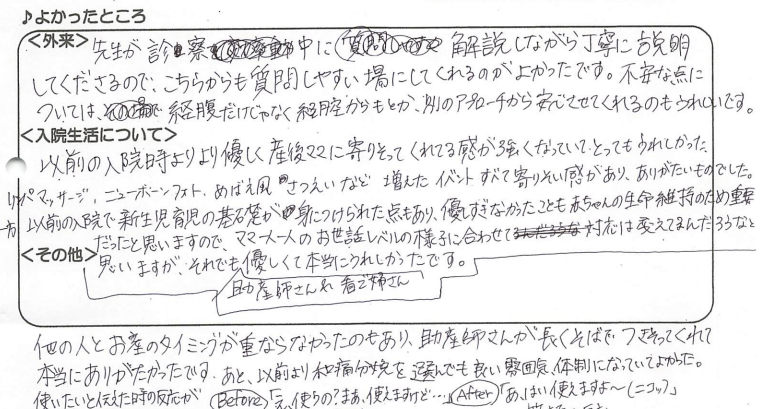 ♪よかったところ
<外来> 先生が診察中に 解説しながら丁寧に説明
してくださるので、こちらからも質問しやすい場にしてくれるのがよかったです。不安な点に
ついては、経腹だけじゃなく経腟からもとか、別のアプローチから安心させてくれるのもうれしいです。
<入院生活について>
以前の入院時よりより優しく産後ママに寄りそってくれてる感が強くなっていて、とってもうれしかった
リンパマッサージ、ニューボーンフォト、めばえ風さつえいなど 増えたイベントすべて寄りそい感があり、ありがたいものでした。
一方 以前の入院で新生児育児の基礎が身につけられた点もあり、優しすぎなかったことも赤ちゃんの生命維持のため重要
だったと思いますので、ママ一人一人のお世話レベルの様子に合わせて対応は変えてるんだろうなと
<その他> 思いますが、それでも優しくて本当にうれしかったです。
助産師さん 看ご婦さん
他の人とお産のタイミングが重ならなかったのもあり、助産師さんが長くそばでつきそってくれて
本当にありがたかったです。あと、以前より和痛分娩を選んでも良い雰囲気、体制になっていてよかった。
使いたいと伝えた時の反応が (Before)「え、使うの?まあ、使えますけど…」(After)「あ、はい使えますよ〜(ニコッ)」